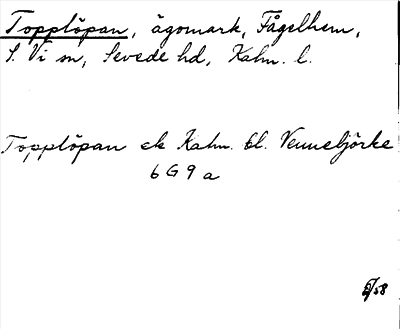 Topplöpan, ägomark, Fågelhem,
S. Vi sn, Sevede hd, Kalm. l.
Topplöpan ek Kalm. bl. Vennebjörke
6 G 9 a
/58